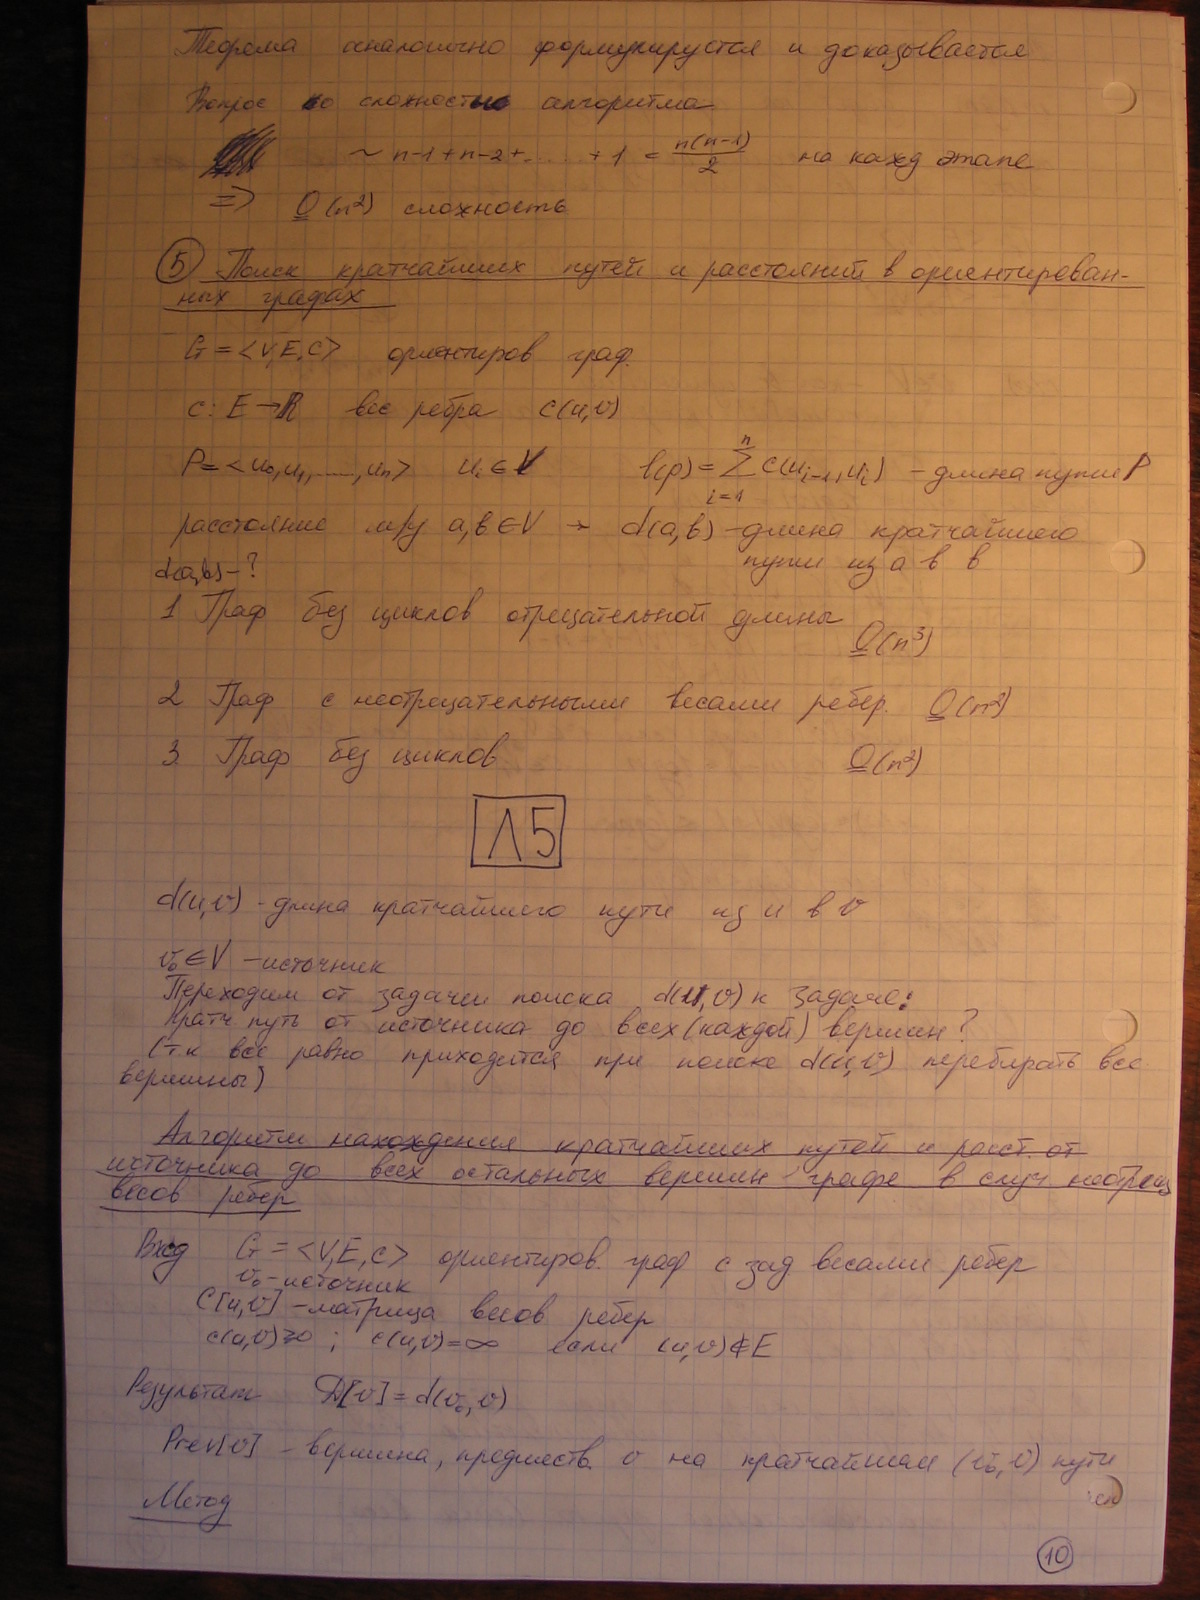 Теорема аналогично формулируется и доказывается
Вопрос о сложности алгоритма
~ n-1+n-2+.....+1 = n(n-1)/2 на кажд этапе
=> O(n²) сложность
⑤ Поиск кратчайших путей и расстояний в ориентирован-
ных графах
G = <V,E,C> ориентиров граф.
c: E→R вес ребра c(u,v)
P = <u₀,u₁,.....,uₙ> uᵢ∈V l(p) = ∑ⁿᵢ₌₁ c(uᵢ₋₁,uᵢ) - длина пути P
расстояние м/у a,b∈V → d(a,b) - длина кратчайшего
пути из a в b
d(a,b) - ?
1 Граф без циклов отрицательной длины O(n³)
2 Граф с неотрицательными весами ребер. O(n²)
3 Граф без циклов O(n²)
Л5
d(u,v) - длина кратчайшего пути из u в v
v₀∈V - источник
Переходим от задачи поиска d(u,v) к задаче:
Кратч путь от источника до всех (каждой) вершин?
(т к все равно приходится при поиске d(u,v) перебирать все
вершины)
Алгоритм нахождения кратчайших путей и расст. от
источника до всех остальных вершин графе в случ неотриц
весов ребер
Вход G = <V,E,C> ориентиров. граф с зад весами ребер
v₀ - источник
C[u,v] - матрица весов ребер
c(u,v)≥0 ; c(u,v)=∞ если (u,v)∉E
Результат D[v] = d(v₀,v)
Prev[v] - вершина, предшеств. v на кратчайшем (v₀,v) пути
Метод
10